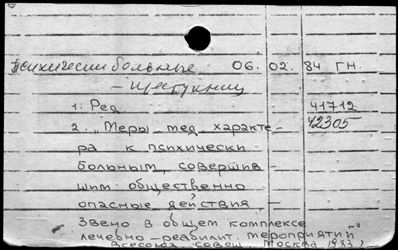 Психически больные 06. 02. 84 ГН.
– преступники
1. Ред 41712
2. "Меры мед. характе- 42305
ра к психически
больным, совершив
шим общественно
опасные действия, –
звено в общем комплексе
лечебно-реабилит. мероприятий"
Всесоюз. совещ. Москва 1983)